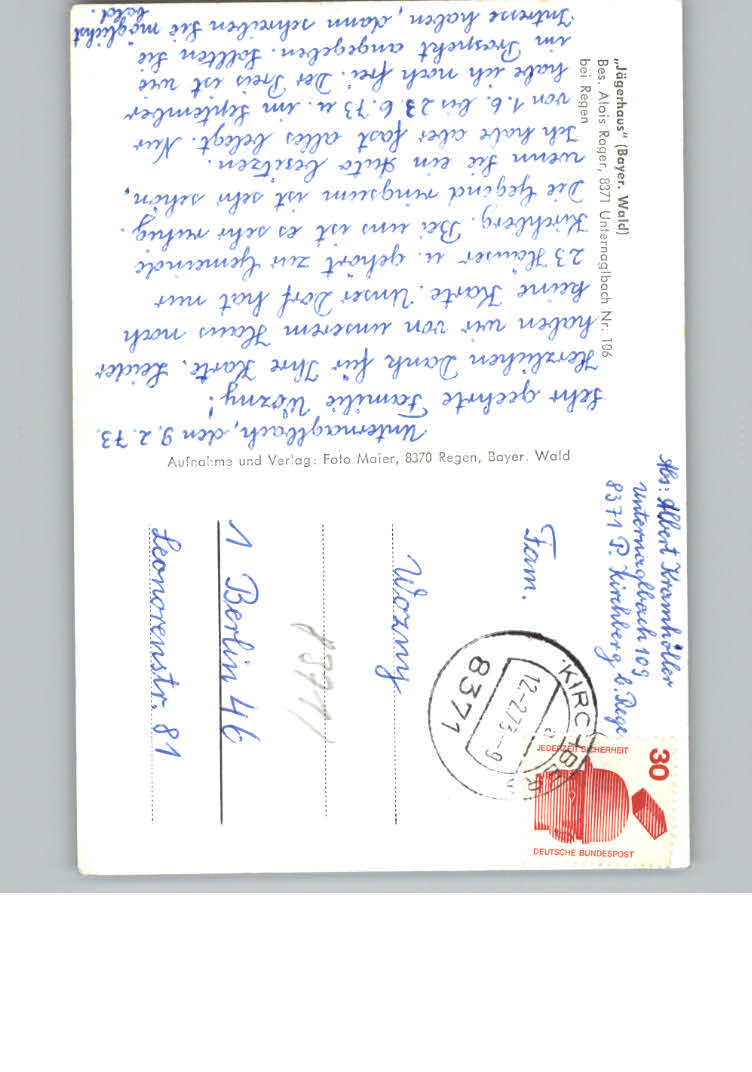 „Jägerhaus" (Bayer. Wald)
Bes. Alois Rager, 8371 Unternaglbach Nr. 106
bei Regen
Unternaglbach, den 9.2.73.
Sehr geehrte Familie Wozny!
Herzlichen Dank für Ihre Karte. Leider
haben wir von unserem Haus noch
keine Karte. Unser Dorf hat nur
23 Häuser u. gehört zur Gemeinde
Kirchberg. Bei uns ist es sehr ruhig.
Die Gegend ringsum ist sehr schön,
wenn Sie ein Auto besitzen.
Ich habe aber fast alles belegt. Nur
von 1.6. bis 23.6.73 u. im September
habe ich noch frei. Der Preis ist wie
im Prospekt angegeben. Sollten Sie
Intresse haben, dann schreiben Sie möglichst
bald.
Aufnahme und Verlag: Foto Maier, 8370 Regen, Bayer. Wald
Abs: Albert Kramhöller
Unternaglbach 109
8371 P. Kirchberg b. Rege
Fam.
Wozny
1 Berlin 46
Leonorenstr. 81
KIRCHBERG
12.-2.73.-9
8371
JEDERZEIT SICHERHEIT
30
DEUTSCHE BUNDESPOST